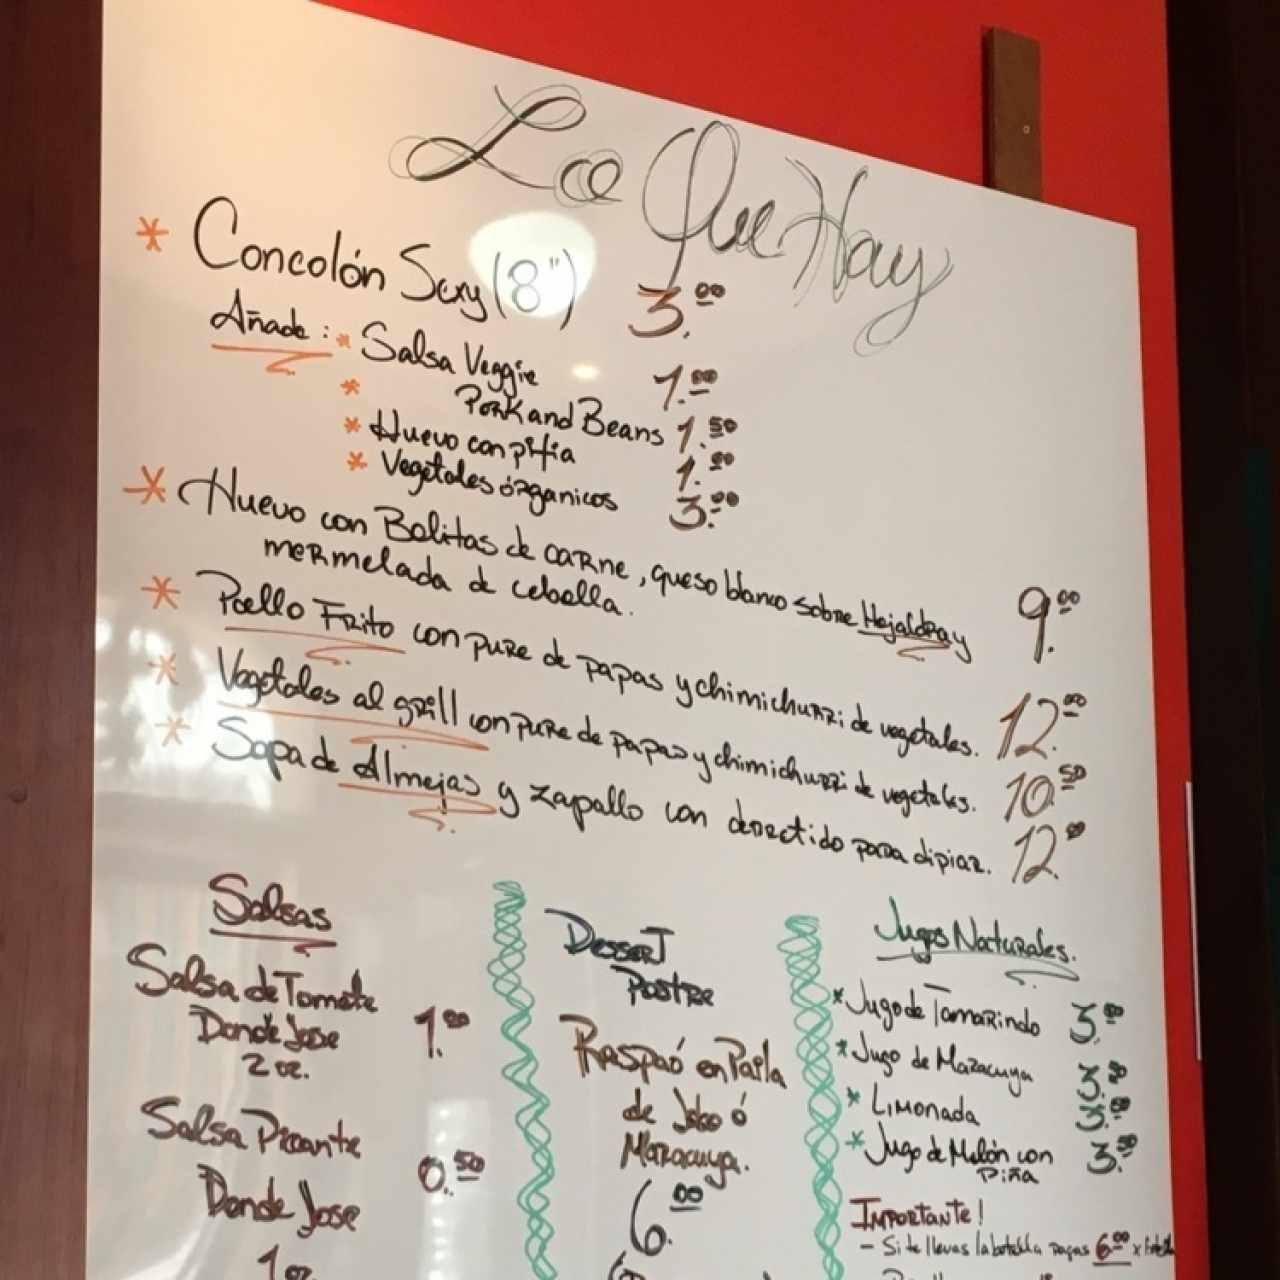 Lo Que Hay
* Concolón Sexy (8") 3.00
Añade: * Salsa Veggie 1.00
* Pork and Beans 1.50
* Huevo con pifia 1.00
* Vegetales órganicos 3.00
* Huevo con Bolitas de carne, queso blanco sobre Hojaldra y 9.00
mermelada de cebolla.
* Poello Frito con pure de papas y chimichurri de vegetales. 12.00
* Vegetales al grill con pure de papas y chimichurri de vegetales. 10.50
* Sopa de Almejas y zapallo con derretido para dipiar. 12.00
Salsas
Salsa de Tomate
Donde Jose 1.00
2 oz.
Salsa Picante
0.50
Donde Jose
1 oz.
Dessert
Postre
Raspaó en Paila
de Jobo ó
Maracuya.
6.00
Jugos Naturales.
* Jugo de Tamarindo 3.50
* Jugo de Maracuya 3.50
* Limonada 3.50
* Jugo de Melón con 3.50
Piña
Importante!
- Si te llevas la botella pagas 6.00 x